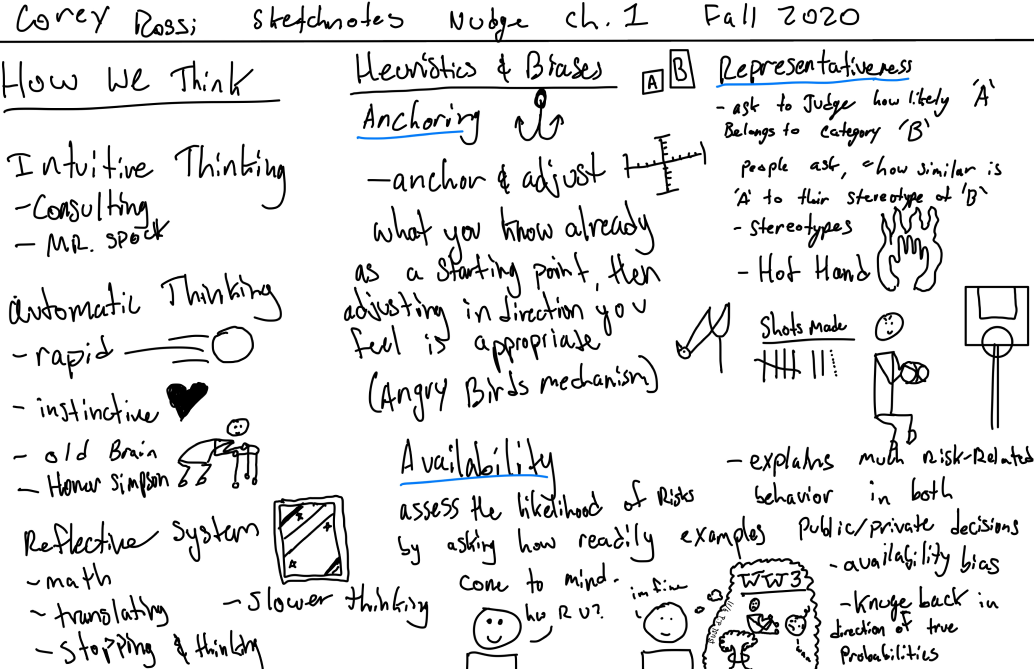 Corey Rossi Sketchnotes Nudge ch. 1 Fall 2020
How We Think
Intuitive Thinking
- Consulting
- MR. Spock
automatic Thinking
- rapid
- instinctive
- old Brain
- Homer Simpson
Reflective System
- math
- translating
- stopping & thinking
- slower thinking
Heuristics & Biases
Anchoring
- anchor & adjust
what you know already
as a starting point, then
adjusting in direction you
feel is appropriate
(Angry Birds mechanism)
Availability
assess the likelihood of Risks
by asking how readily examples
come to mind.
how R U?
im fine
WW3
A B
Representativeness
- ask to Judge how likely 'A'
Belongs to category 'B'
people ask, "how similar is
'A' to their stereotype of 'B'
- stereotypes
- Hot Hand
Shots Made
- explains much Risk-Related
behavior in both
Public/private decisions
- availability bias
- Knuge back in
direction of true
Probabilities